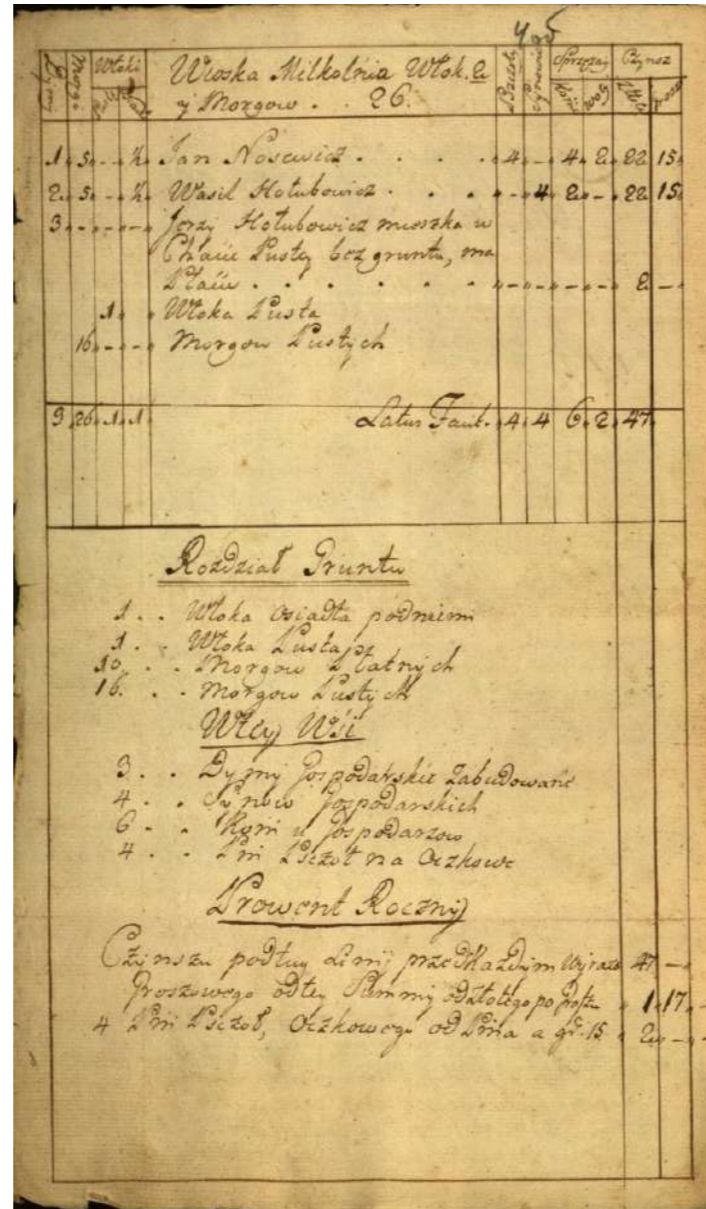 Dymy Morgi Włoki Wioska Milkolnia Włok. 2 Pszczoły Synowie Sprzężay Czynsz
y Morgow . . 26. Koni Woły Złote grosze
1 5 - ½ Jan Nosewicz . . . . 4 - 4 2 22 15
2 5 - ½ Wasil Hołubowicz . . . - 4 2 - 22 15
3 - - - Jerzy Hołubowicz mieszka w
Chacie Pustey bez gruntu, ma
Płacic . . . . . . - - - - 2 -
1 Włoka Pusta
16 - - Morgow Pustych
3 26 1 1 Latus Facit 4 4 6 2 47
Rozdział Gruntu
1 . . Włoka osiadła podniemi
1 . . Włoka Pusta
10 . . Morgow Płatnych
16 . . Morgow Pustych
Wtey Wsi
3 . . Dymy Gospodarskie Zabudowane
4 . . Synow Gospodarskich
6 . . Koni u Gospodarzow
4 . . Pni Pszczoł na Oczkowe
Prowent Roczny
Czinszu podług Linij przed Każdym 47 -
Groszowego odtey Summy odzłotego po Groszu 1 17
4 Pni Pszczoł, Oczkowego od Pnia a gr. 15 2 -